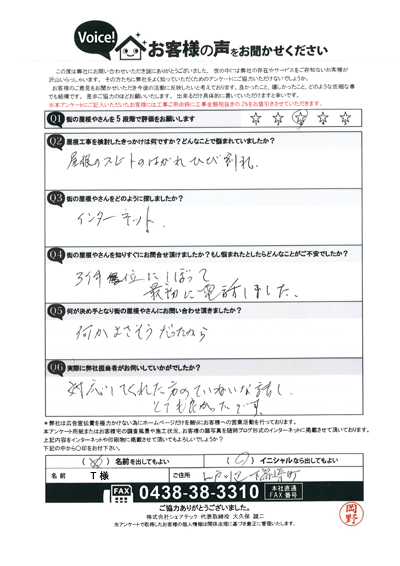 Voice!
お客様の声をお聞かせください
この度は弊社にお問い合わせいただき誠にありがとうございました。世の中には弊社の存在やサービスをご存知ないお客様が
沢山いらっしゃいます。その方たちに弊社をよく知っていただくためのアンケートにご協力いただけないでしょうか。
お客様のご意見をお聞かせいただき今後の活動に反映したいと考えております。良かったこと、嬉しかったこと、どのような些細な事
でも結構です。是非ご協力のほどお願いいたします。出来るだけ具体的に書いていただけますと幸いです。
※本アンケートにご記入いただいたお客様には工事ご用命時に工事金額税抜きの2%をお値引きさせていただきます。
Q1 街の屋根やさんを5段階で評価をお願いします ☆ ☆ ☆ ☆ ☆
Q2 屋根工事を検討したきっかけは何ですか？どんなことで悩まれていましたか？
屋根のスレートのはがれひび割れ
Q3 街の屋根やさんをどのように探しましたか？
インターネット
Q4 街の屋根やさんを知りすぐにお問合せ頂けましたか？もし悩まれたとしたらどんなことがご不安でしたか？
3件位にしぼって
最初に電話しました。
Q5 何が決め手となり街の屋根やさんにお問い合わせ頂きましたか？
何かよさそうだったから
Q6 実際に弊社担当者がお伺いしていかがでしたか？
対応してくれた方のていねいな話し
とても良かったです
＊弊社は広告宣伝費を極力かけない為にホームページだけを頼りにお客様への営業活動を行っております。
本アンケート用紙またはお客様宅の調査風景や施工状況、お客様の顔写真を随時ブログ形式のインターネットに掲載させて頂いております。
上記内容をインターネットや印刷物に掲載させて頂いてもよろしいでしょうか？
下記の中から〇印をお付け下さい。
( ) 名前を出してもよい ( ) イニシャルなら出してもよい
名前 T様 ご住所 江戸川区
FAX 0438-38-3310 本社直通 FAX番号
ご協力ありがとうございました。
株式会社シェアテック 代表取締役 大久保 誠二
当アンケートで取得したお客様の個人情報は関係法規に基づき厳正に管理いたします。
岡野